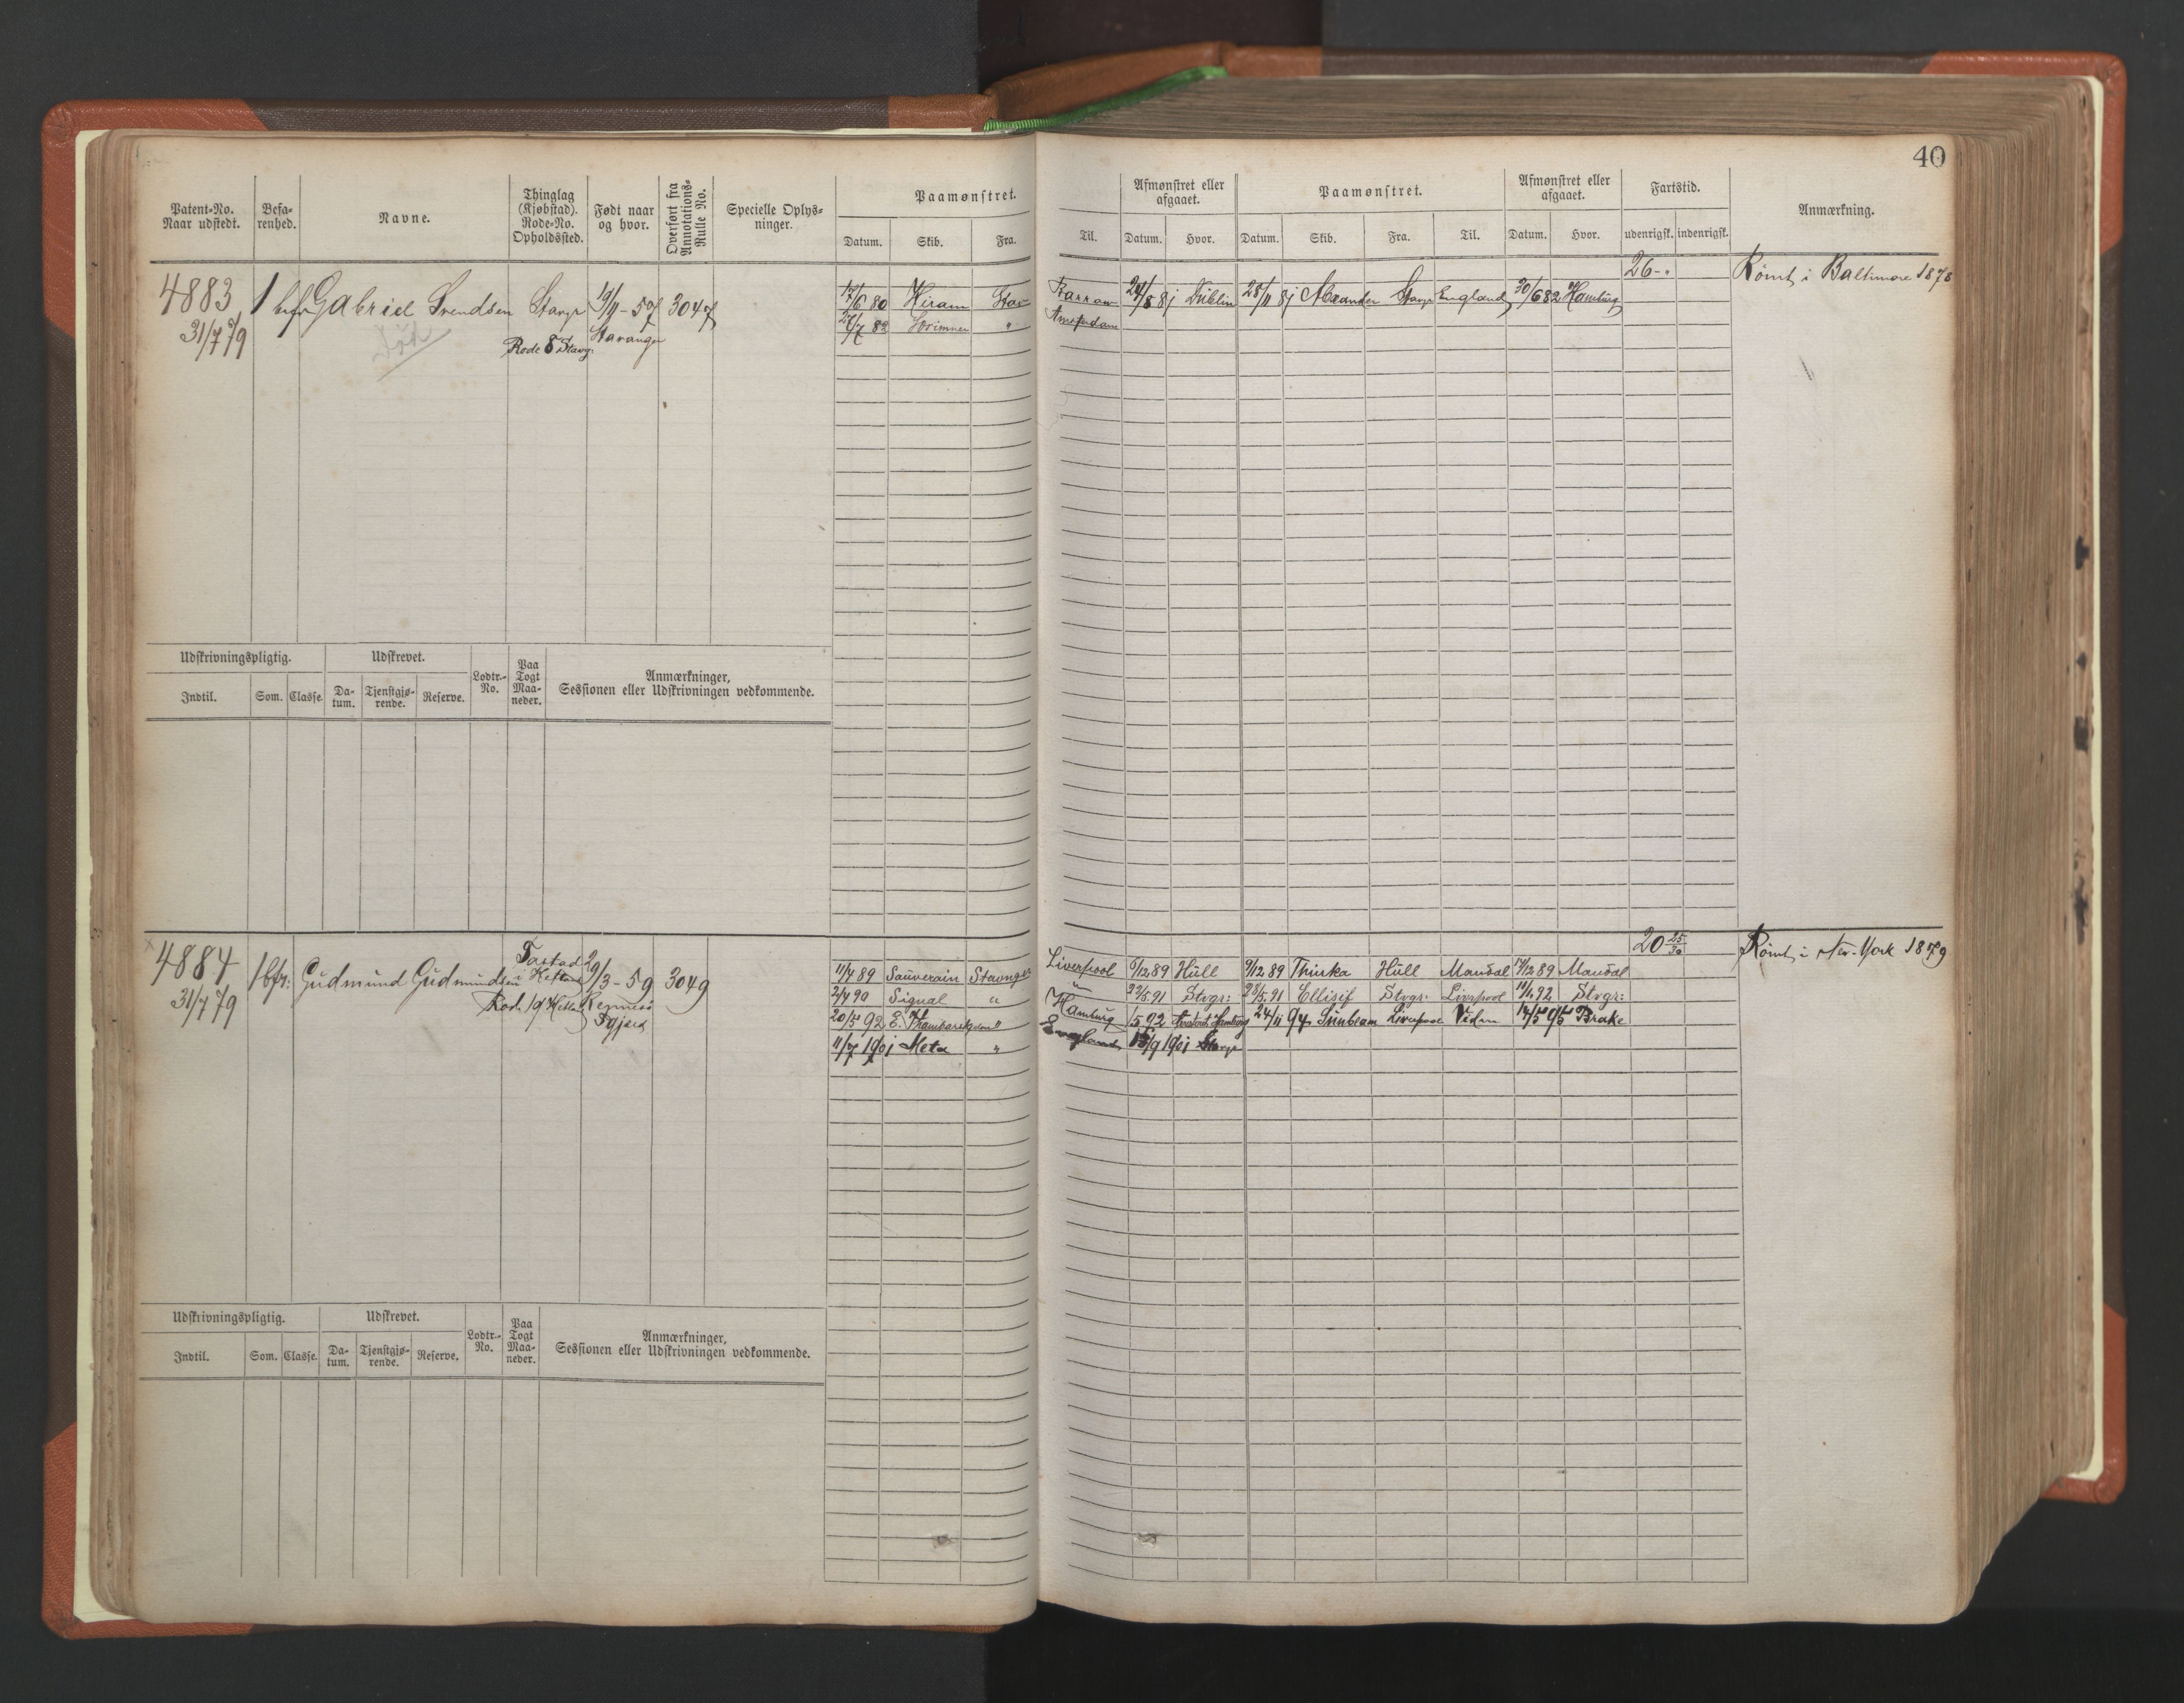 40
Patent-No. Naar udstedt.
Befa-renhed.
Navne.
Thinglag (Kjøbstad). Rode-No. Opholdssted.
Født naar og hvor.
Overført fra Annotations-Rulle No.
Specielle Oplys-ninger.
Paamønstret.
Datum. Skib. Fra. Til.
Afmønstret eller afgaaet.
Datum. Hvor.
Paamønstret.
Datum. Skib. Fra. Til.
Afmønstret eller afgaaet.
Datum. Hvor.
Fartstid.
udenrigsk. indenrigsk.
Anmærkning.
26-. Rømt i Baltimore 1878
4883 1 bfr Gabriel Svendsen Stavgr 19/11-57 3047
31/7 79 Død Rode 8 Stavgr. Stavanger
17/6 80 Hiram Stav Barrow 24/8 81 Dublin 28/11 81 Alexander Stavgr England 30/6 82 Hamburg
27/7 82 " Amsterdam
Udskrivningspligtig.
Indtil. Som. Classe.
Udskrevet.
Da-tum. Tjenstgjø-rende. Reserve.
Lodtr.-No.
Paa Togt Maa-neder.
Anmærkninger,
Sessionen eller Udskrivningen vedkommende.
20 25/30 Rømt i New-York 1879
4884 1 bfr: Gudmund Gudmundsen Tastad i Hetland 29/3-59 3049
31/7 79 Rod. 19 Hetland Rennesø
11/7 89 Sauverain Stavnger Liverpool 9/12 89 Hull 9/12 89 Thinka Hull Mandal 17/12 89 Mandal
2/7 90 Signal " " 22/5.91 Stvgr: 28/5.91 Ellisif Stvgr: Liverpool 11/1.92 Stvgr:
20/5 92 E. " Hamburg /5 92 Hamburg 24/11 94 Sunbeam Liverpool 14/5 95 Brake
11/7 1901 Meta " England 18/9 1901 Stavgr
Udskrivningspligtig.
Indtil. Som. Classe.
Udskrevet.
Da-tum. Tjenstgjø-rende. Reserve.
Lodtr.-No.
Paa Togt Maa-neder.
Anmærkninger,
Sessionen eller Udskrivningen vedkommende.